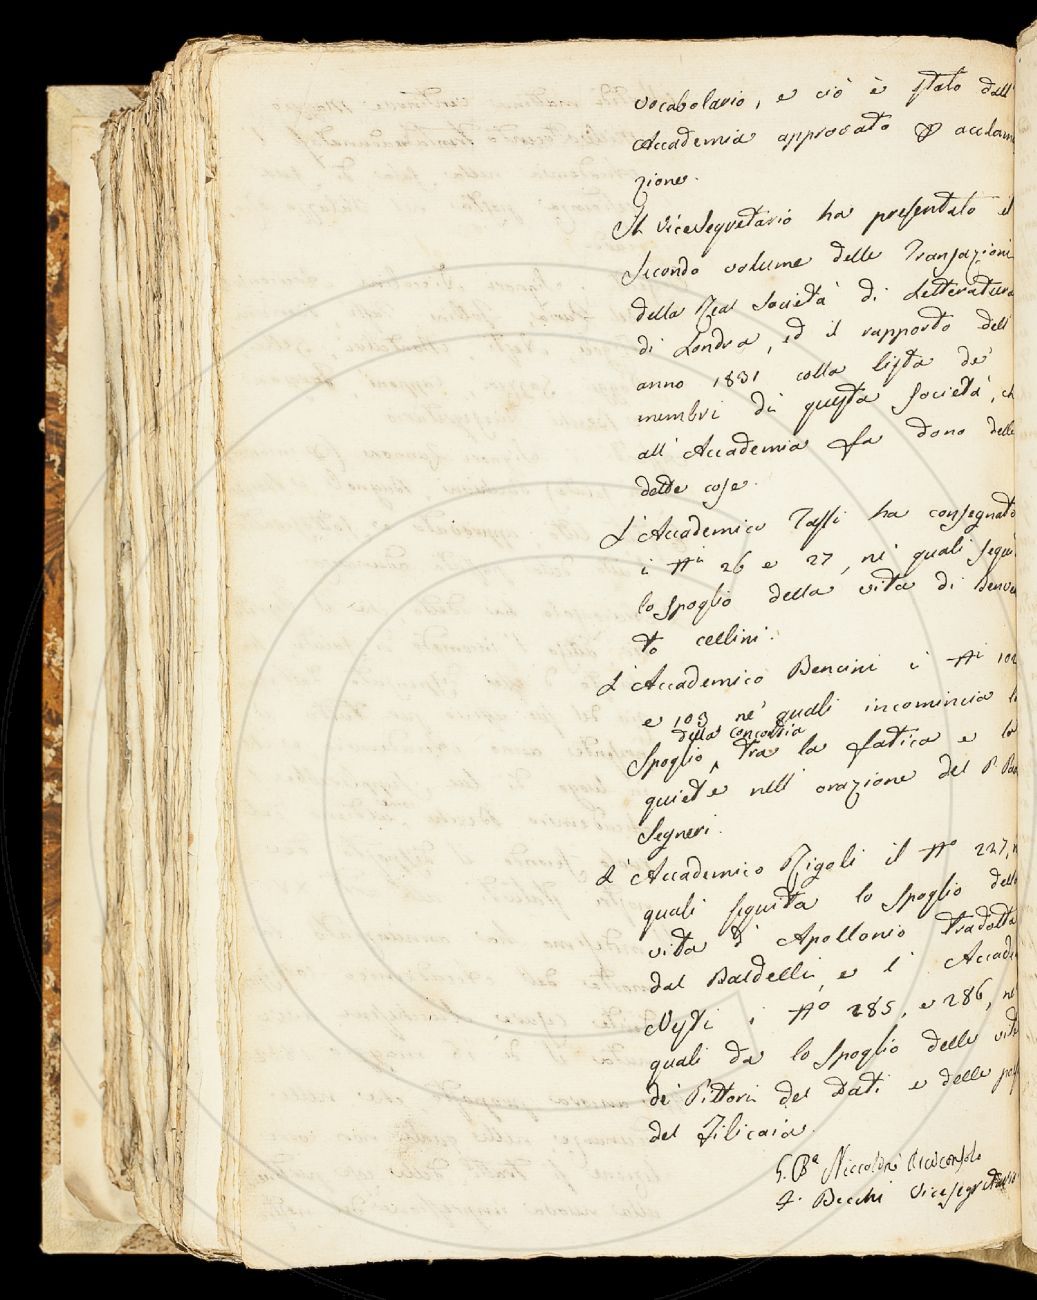 vocabolario, e ciò è stato dall'
Accademia approvato p acclam
zione.
Il Vicesegretario ha presentato il
secondo volume delle Transazioni
della Real Società di Letteratura
di Londra, ed il rapporto dell'
anno 1831 colla lista de'
membri di questa società, ch
all'Accademia fa dono delle
dette cose.
L'Accademico Tassi ha consegnato
i Ni 26 e 27, ne' quali segui
lo spoglio della vita di Benve
to Cellini.
L'Accademico Bencini i Ni 102
e 103 ne' quali incomincia lo
della concordia
spoglio ‸ tra la fatica e la
quiete nell'orazione del P. Pao
Segneri.
L'Accademico Rigoli il No 227, n
quali seguita lo spoglio della
vita d'Apollonio tradotta
dal Baldelli, e l'Accade
Nesti i No 285, e 286, ne'
quali dà lo spoglio delle vite
de' Pittori del Dati e delle poe
del Filicaia.
G. Ba Niccolini Arciconsolo
F. Becchi Vicesegretario